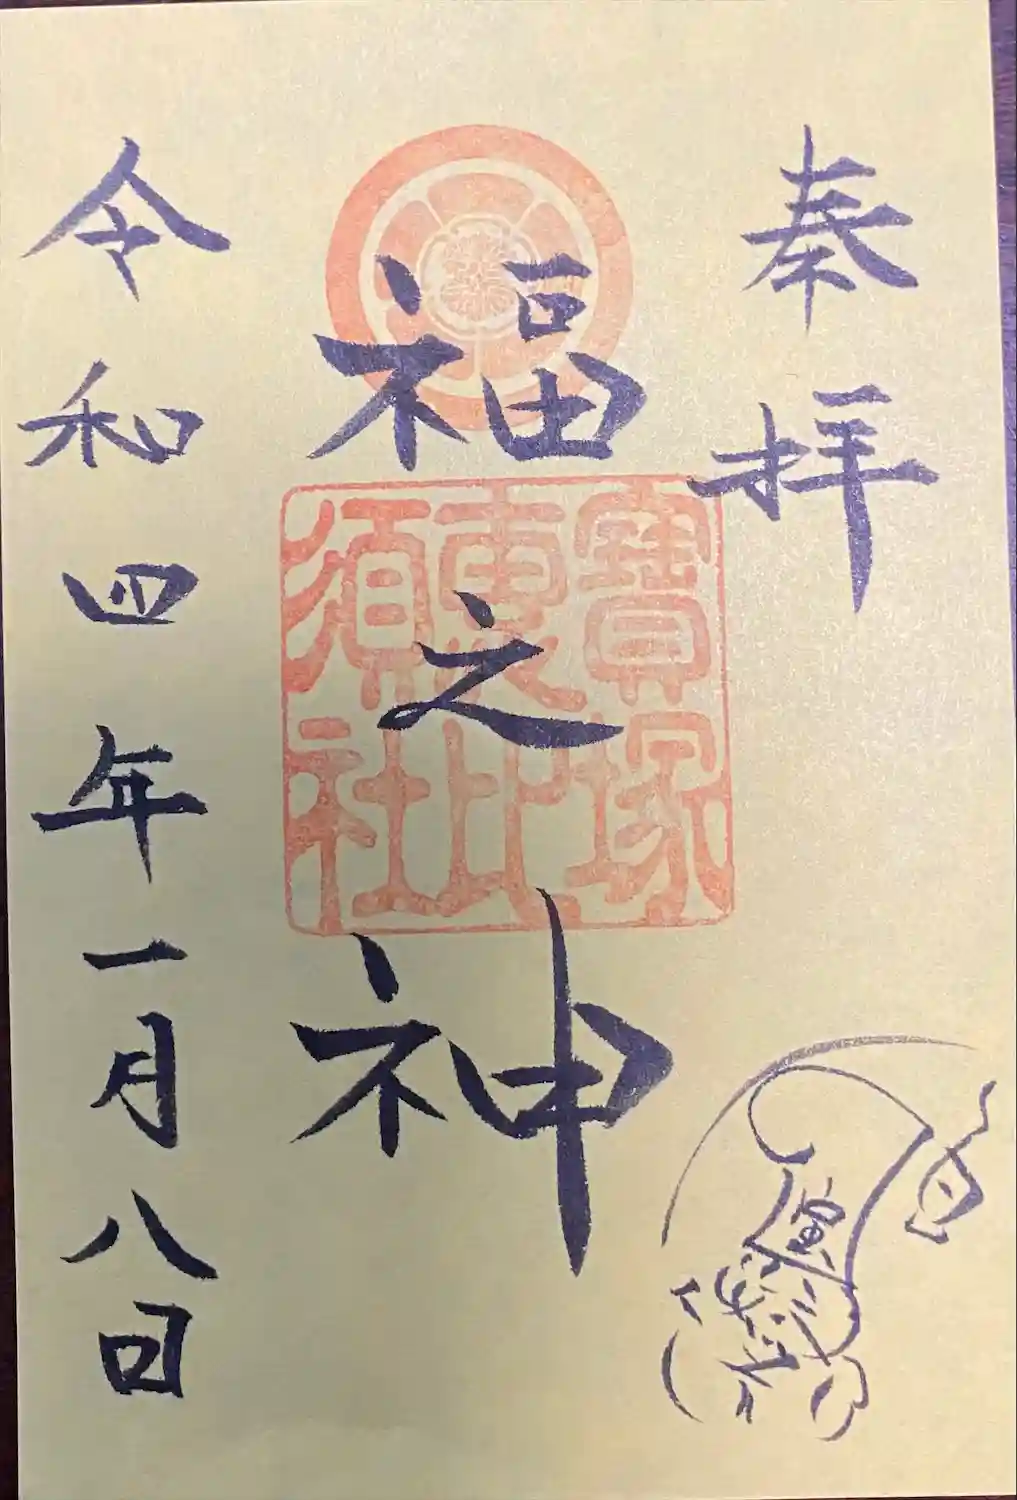 奉拝
福之神
寶塚
惠比
須社
令和四年一月八日